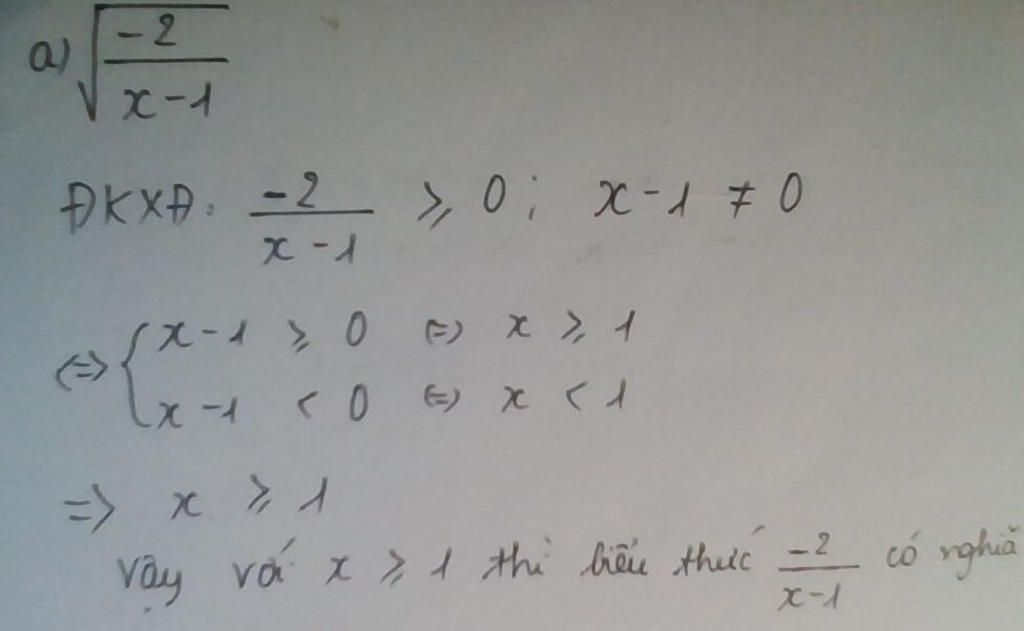 a) √(-2/(x-1))
ĐKXĐ: -2/(x-1) ⩾ 0; x-1 ≠ 0
<=> { x-1 ⩾ 0 <=> x ⩾ 1
x-1 < 0 <=> x < 1
=> x ⩾ 1
Vậy với x ⩾ 1 thì biểu thức -2/(x-1) có nghĩa